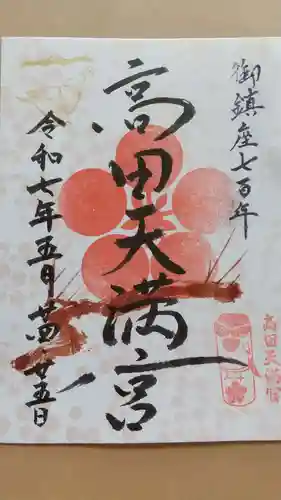 御鎮座七百年
高田天満宮
令和七年五月廿四廿五日
高田天満宮